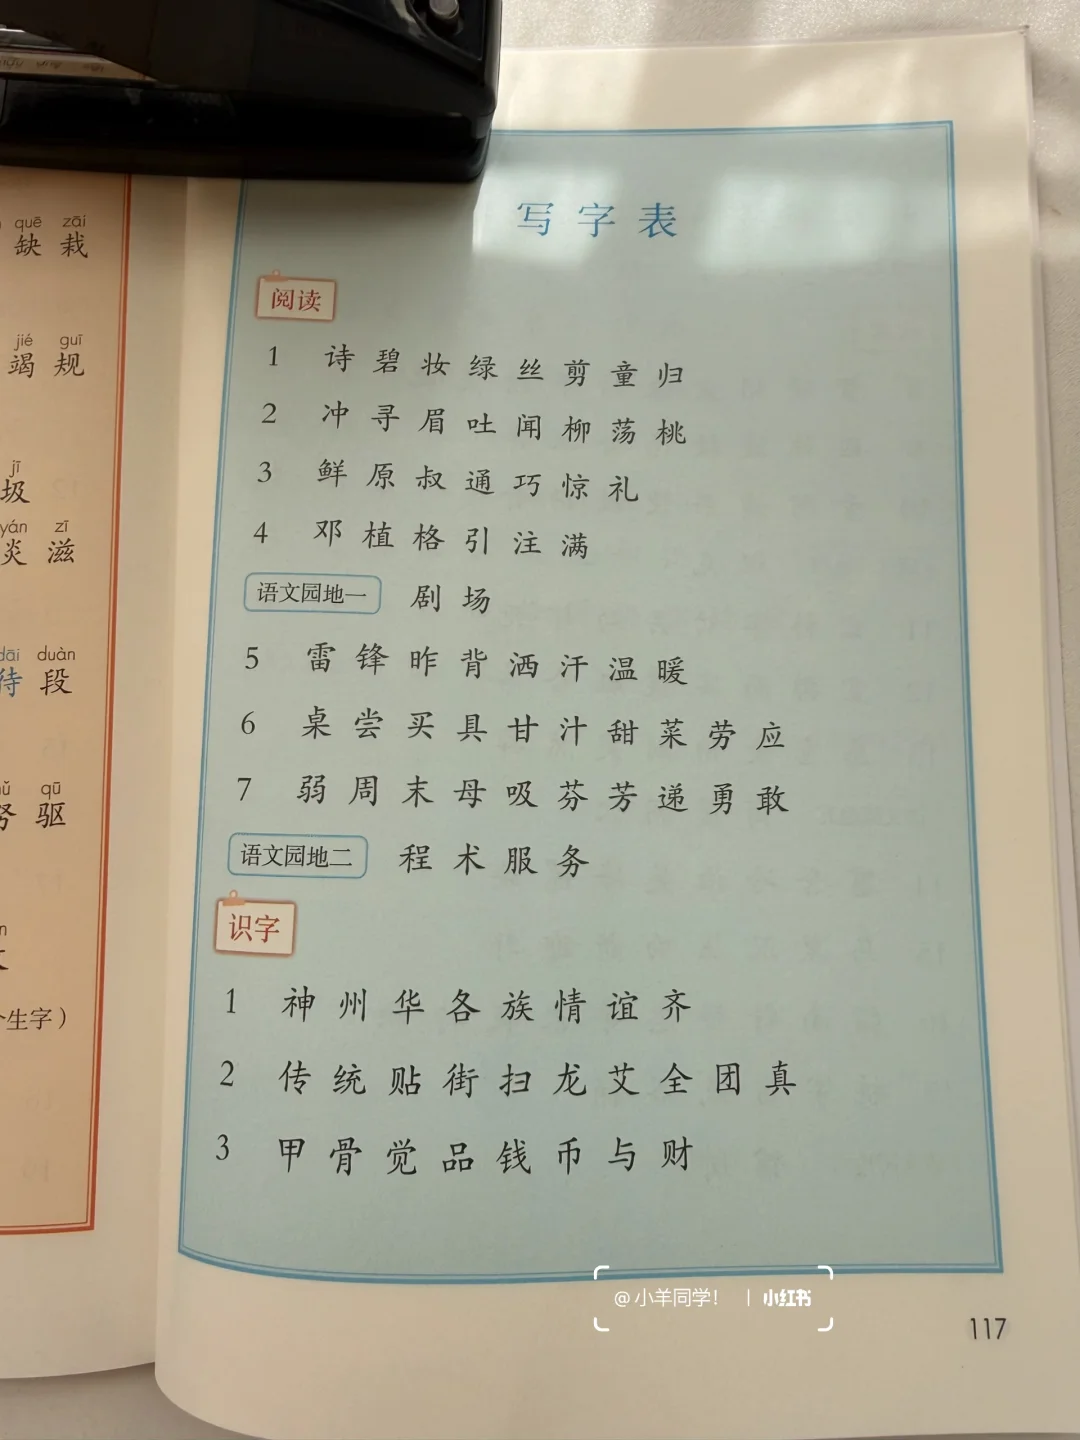 quē zāi
缺 栽
jié guī
竭 规
jī
圾
yán zī
炎 滋
dāi duàn
待 段
qū
驱
个生字）
写字表
阅读
1 诗 碧 妆 绿 丝 剪 童 归
2 冲 寻 眉 吐 闻 柳 荡 桃
3 鲜 原 叔 通 巧 惊 礼
4 邓 植 格 引 注 满
语文园地一 剧 场
5 雷 锋 昨 背 洒 汗 温 暖
6 桌 尝 买 具 甘 汁 甜 菜 劳 应
7 弱 周 末 母 吸 芬 芳 递 勇 敢
语文园地二 程 术 服 务
识字
1 神 州 华 各 族 情 谊 齐
2 传 统 贴 街 扫 龙 艾 全 团 真
3 甲 骨 觉 品 钱 币 与 财
@小羊同学！ | 小红书
117